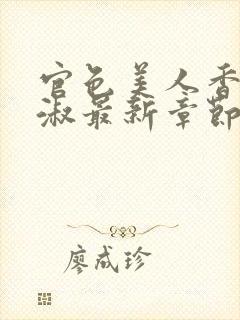 官色美人香
淑最新章節
廖成珍